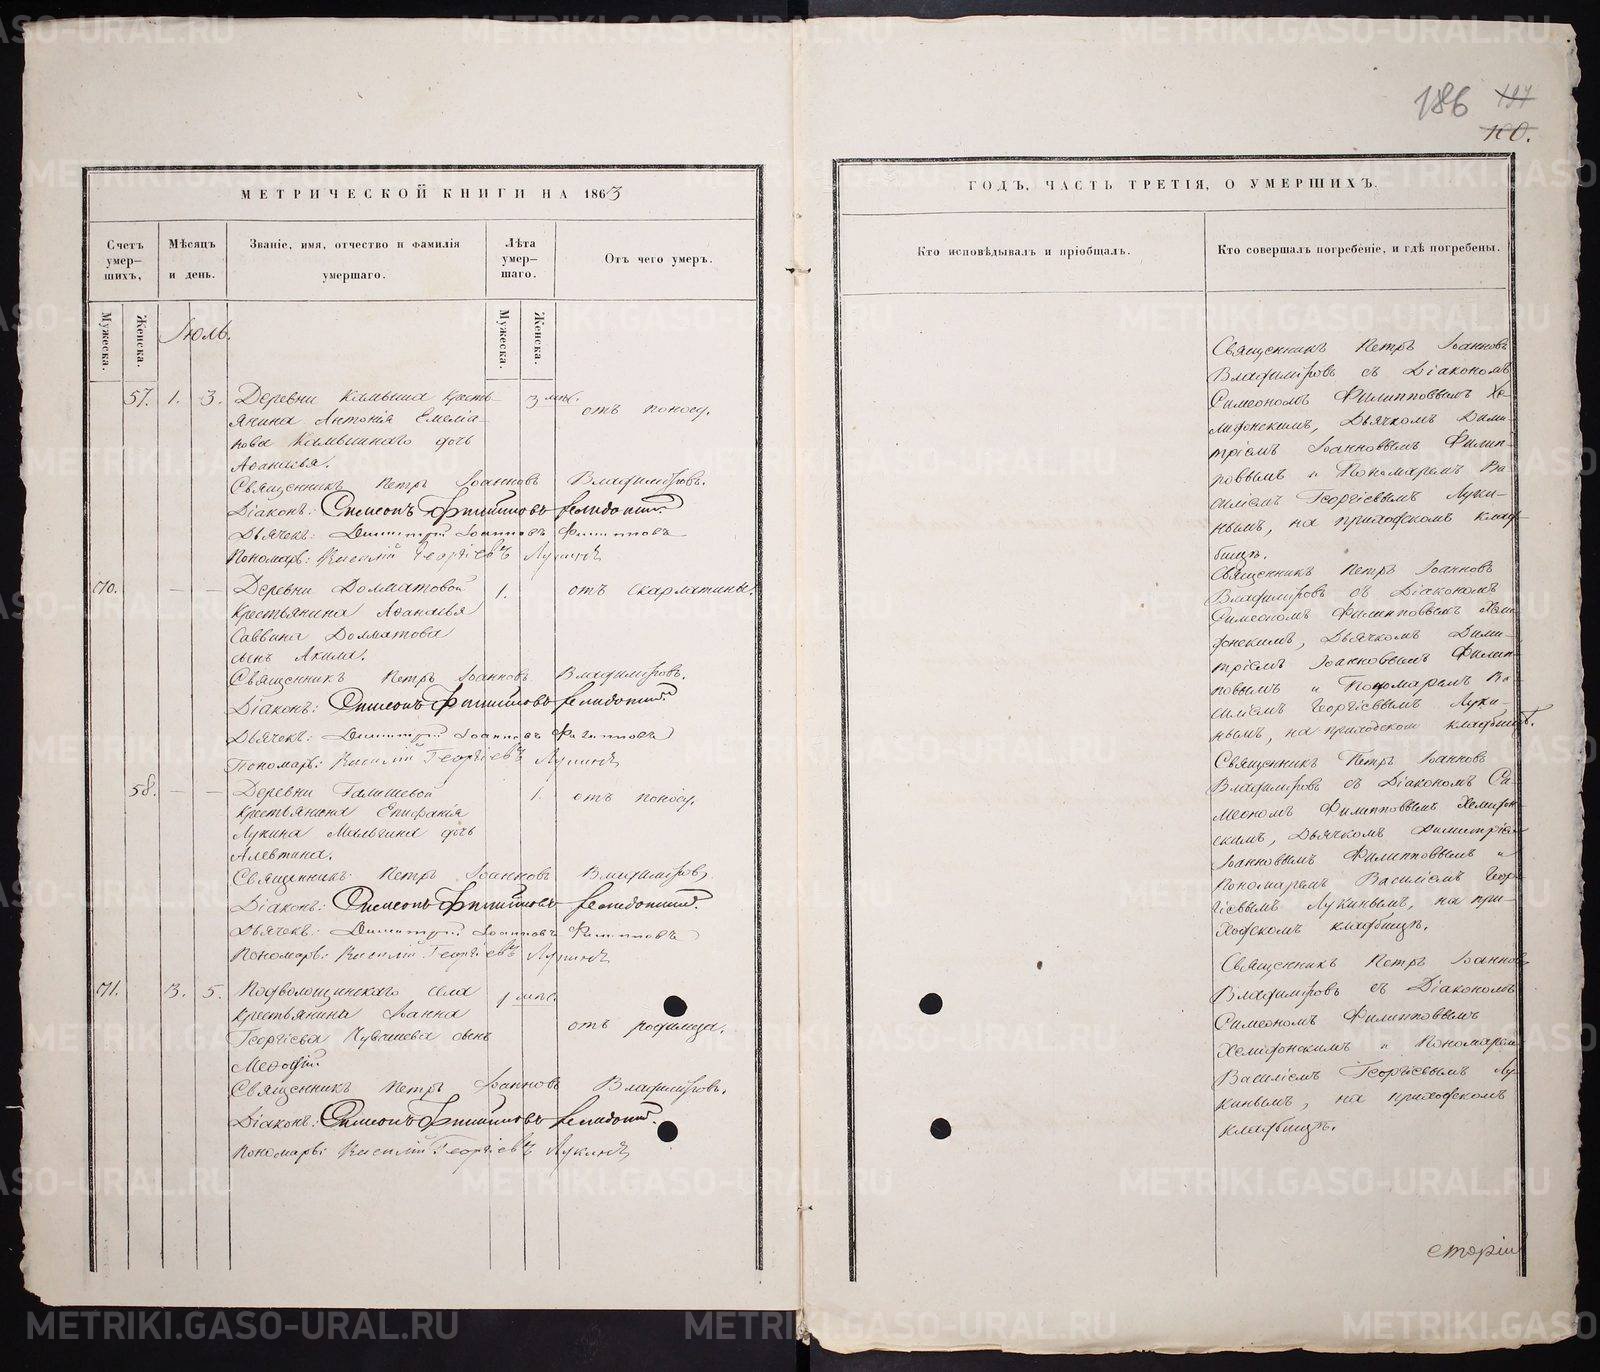 МЕТРИЧЕСКОЙ КНИГИ НА 1863
Счетъ умер–шихъ.
Мѣсяцъ и день.
Званіе, имя, отчество и фамилія умершаго.
Лѣта умер–шаго.
Отъ чего умеръ.
Мужеска.
Женска.
Мужеска.
Женска.
Іюль.
57. 1. 3. Деревни Камыша кресть-
янина Антонія Емеліа-
нова дочь
Аѳанасья.
3 мѣс.
отъ поносу.
Священникъ Петръ Іоанновъ Владиміровъ.
Діаконъ: Симеонъ Филипповъ
Дьячекъ: Димитрій Іоанновъ Филипповъ
Пономарь: Василій Георгіевъ Лукинъ
70. — — Деревни Долматовой
крестьянина Аѳанасья
Саввина Долматова
сынъ Акима.
1.
отъ скарлатины.
Священникъ Петръ Іоанновъ Владиміровъ.
Діаконъ: Симеонъ Филипповъ
Дьячекъ: Димитрій Іоанновъ Филипповъ
Пономарь: Василій Георгіевъ Лукинъ
58. — — Деревни Галишевой
крестьянина Епифанія
Лукина дочь
Алевтина.
1.
отъ поносу.
Священникъ Петръ Іоанновъ Владиміровъ
Діаконъ: Симеонъ Филипповъ
Дьячекъ: Димитрій Іоанновъ Филипповъ
Пономарь: Василій Георгіевъ Лукинъ
71. 3. 5. Подволошинскаго села
крестьянина Іоанна
Георгіева Чувашева сынъ
Меѳодій.
1 мѣс.
отъ родимца.
Священникъ Петръ Іоанновъ Владиміровъ.
Діаконъ: Симеонъ Филипповъ
Пономарь: Василій Георгіевъ Лукинъ
186 197
100.
ГОДЪ, ЧАСТЬ ТРЕТІЯ, О УМЕРШИХЪ.
Кто исповѣдывалъ и пріобщалъ.
Кто совершалъ погребеніе, и гдѣ погребены.
Священникъ Петръ Іоанновъ
Владиміровъ съ Діакономъ
Симеономъ Филипповымъ Хе-
лидонскимъ, Дьячкомъ Дими-
тріемъ Іоанновымъ Филип-
повымъ и Пономаремъ Ва-
силіемъ Георгіевымъ Луки-
нымъ, на приходскомъ клад-
бищѣ.
Священникъ Петръ Іоанновъ
Владиміровъ съ Діакономъ
Симеономъ Филипповымъ Хели-
донскимъ, Дьячкомъ Дими-
тріемъ Іоанновымъ Филип-
повымъ и Пономаремъ Ва-
силіемъ Георгіевымъ Луки-
нымъ, на приходском кладбищѣ.
Священникъ Петръ Іоанновъ
Владиміровъ съ Діакономъ Си-
меономъ Филипповымъ Хелидон-
скимъ, Дьячкомъ Димитріемъ
Іоанновымъ Филипповымъ и
Пономаремъ Василіемъ Геор-
гіевымъ Лукинымъ, на при-
ходскомъ кладбищѣ.
Священникъ Петръ Іоанновъ
Владиміровъ съ Діакономъ
Симеономъ Филипповымъ
Хелидонскимъ и Пономаремъ
Василіемъ Георгіевымъ Лу-
кинымъ, на приходскомъ
кладбищѣ.
METRIKI.GASO-URAL.RU